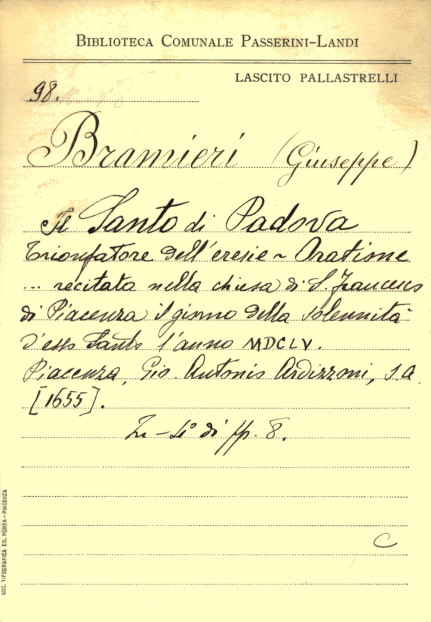 BIBLIOTECA COMUNALE PASSERINI-LANDI
LASCITO PALLASTRELLI
98.
Bramieri (Giuseppe)
Il Santo di Padova
trionfatore dell'eresie - Oratione
... recitata nella chiesa di S. Francesco
di Piacenza il giorno della solennità
d'esso Santo l'anno MDCLV.
Piacenza, Gio. Antonio Ardizzoni, s.a.
[1655].
In-4° di pp. 8.
C
SOC. TIPOGRAFICA ED. PORTA - PIACENZA